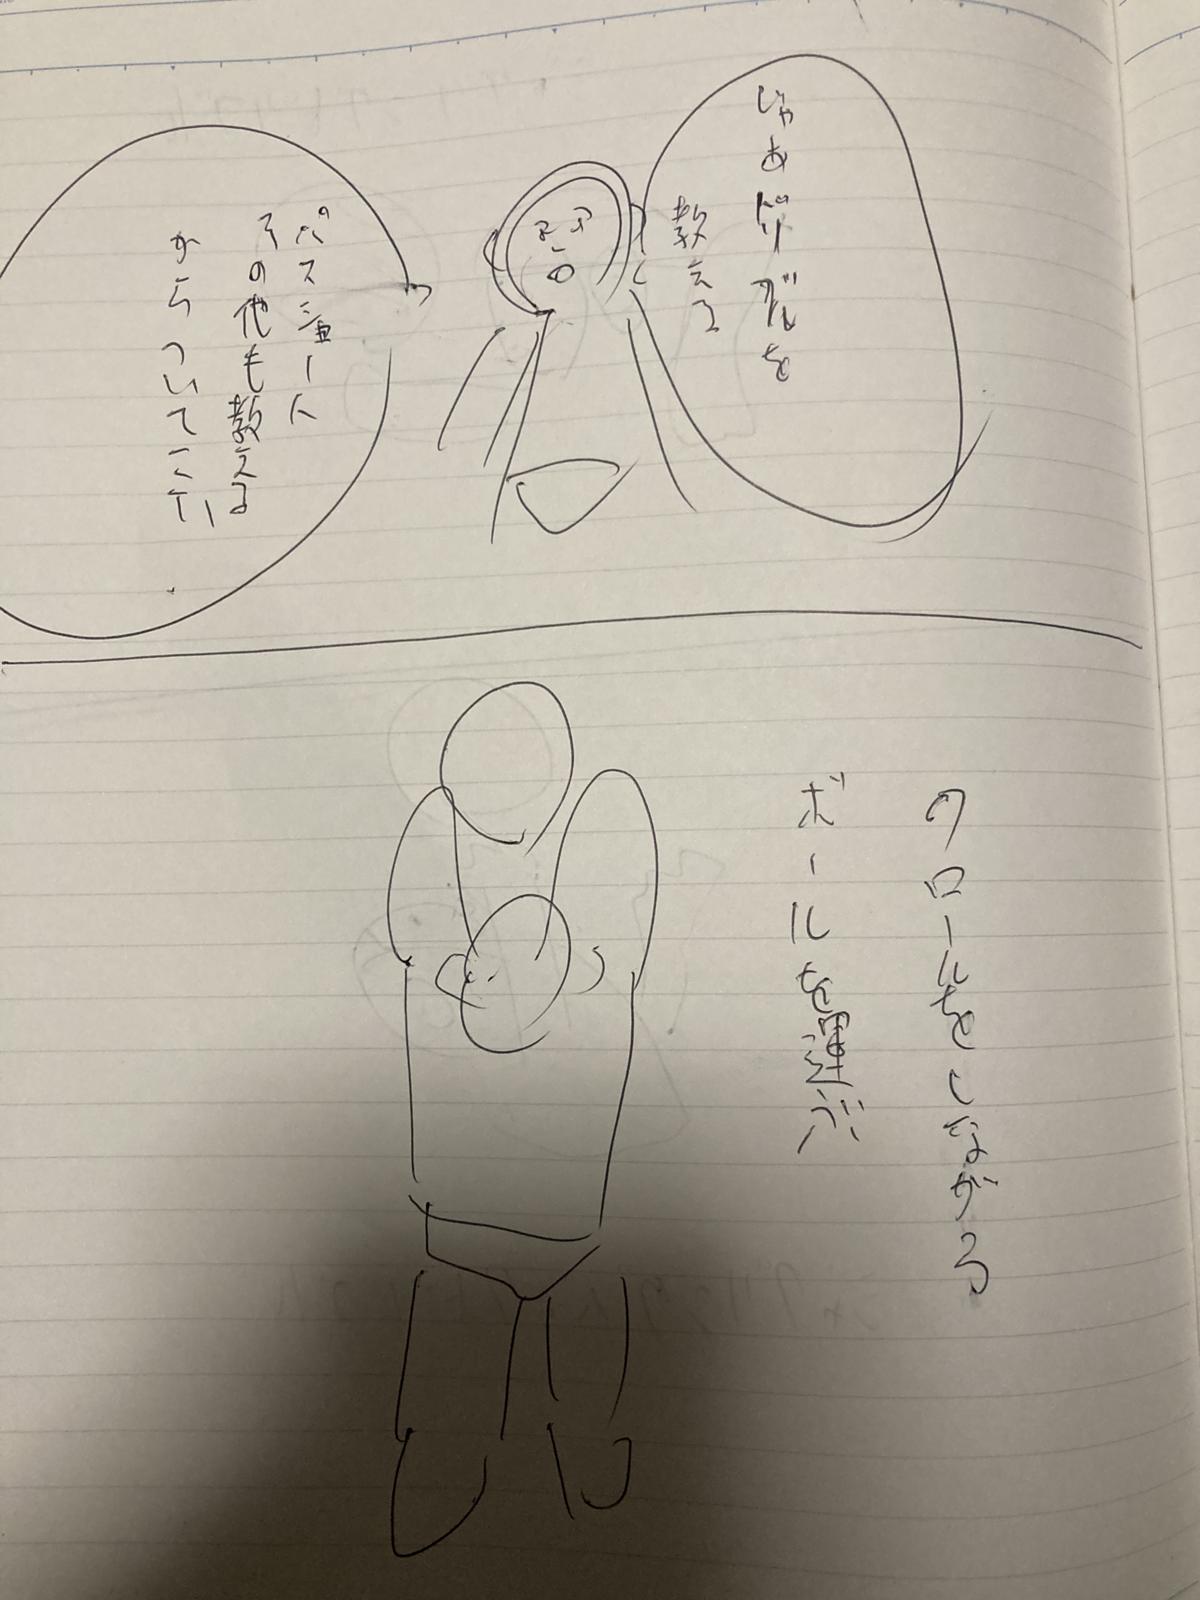 じゃあドリブルを
教える
パスシュート
その他も教える
からついてこい
クロールをしながら
ボールを運ぶ